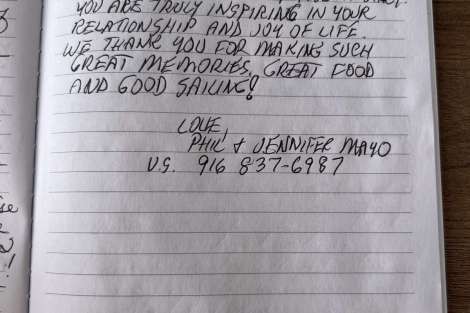 YOU ARE TRULY INSPIRING IN YOUR
RELATIONSHIP AND JOY OF LIFE.
WE THANK YOU FOR MAKING SUCH
GREAT MEMORIES, GREAT FOOD
AND GOOD SAILING!
LOVE,
PHIL & JENNIFER MAYO
U.S. 916 837-6987